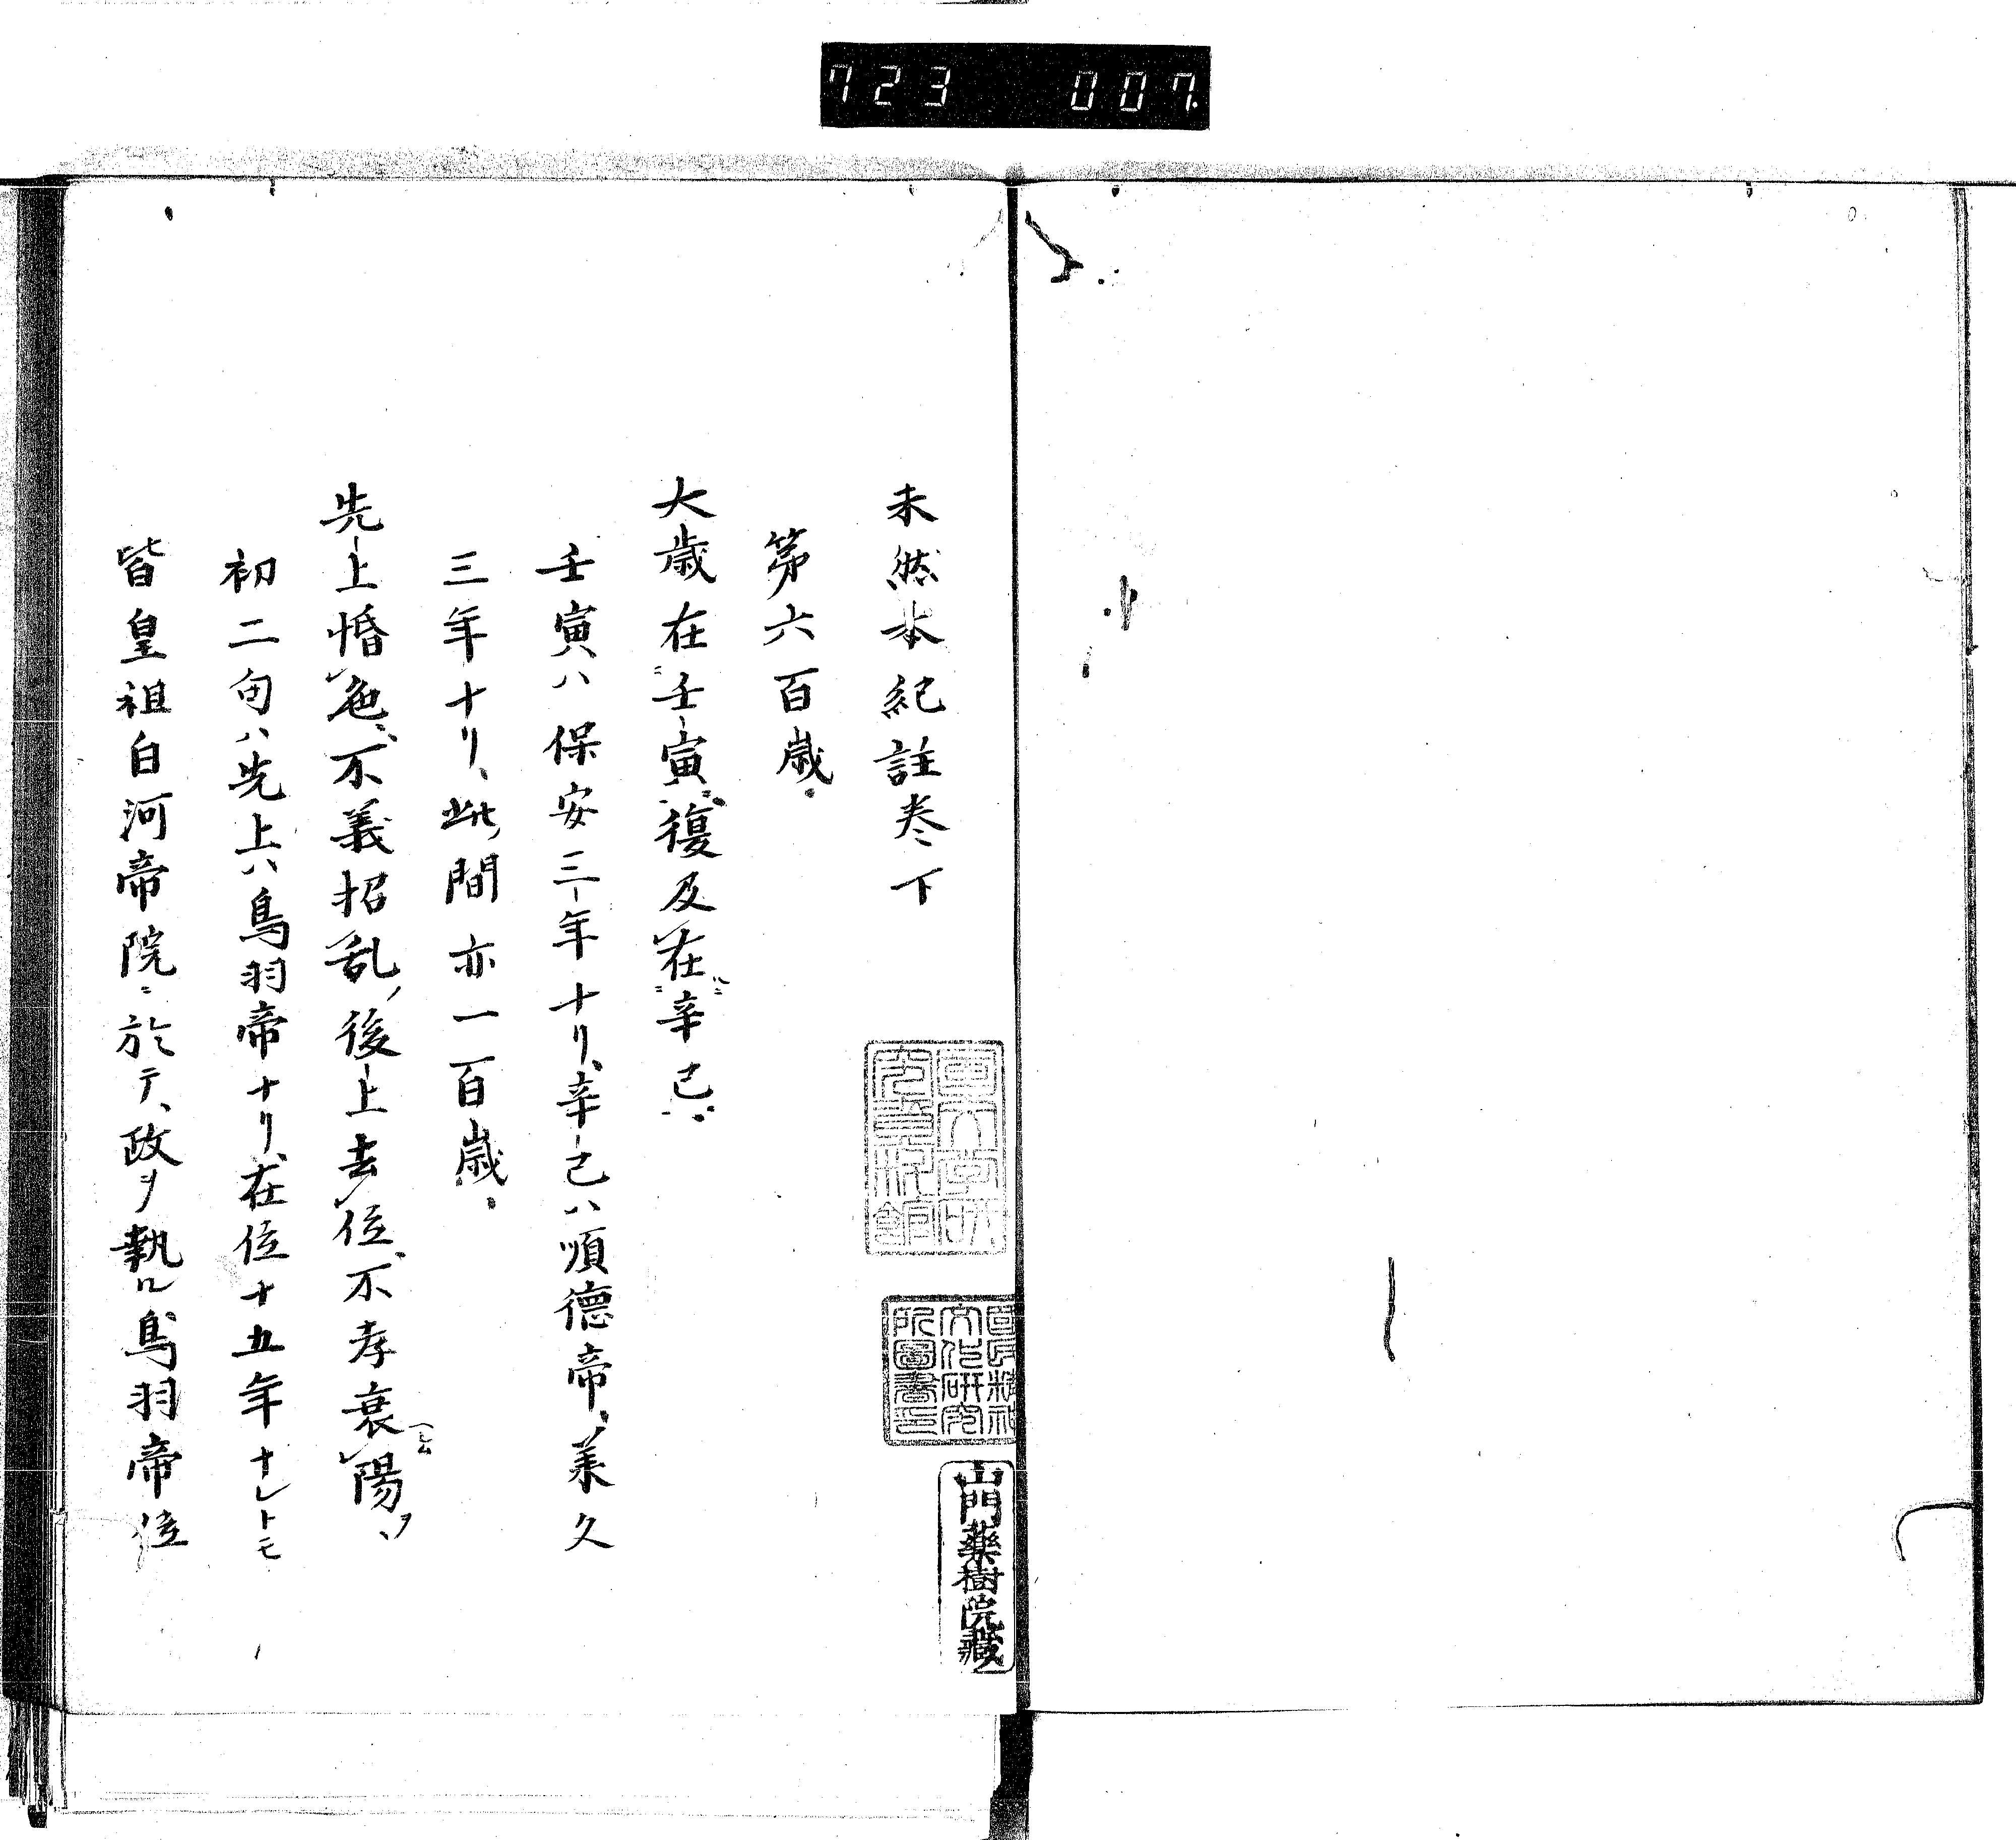 723 007.
未然本紀註巻下
第六百歳
大歳在壬寅復及在辛己
壬寅ハ保安三年ナリ、辛己ハ順徳帝、業久
三年ナリ、此間亦一百歳
先上惛色不義招乱後上去位不孝衰陽
初二句ハ先上ハ鳥羽帝ナリ、在位十五年ナレトモ
皆皇祖白河帝院ニ於テ、政ヲ執ル鳥羽帝位
國民精神
文化研究
所圖書印
山門藥樹院藏